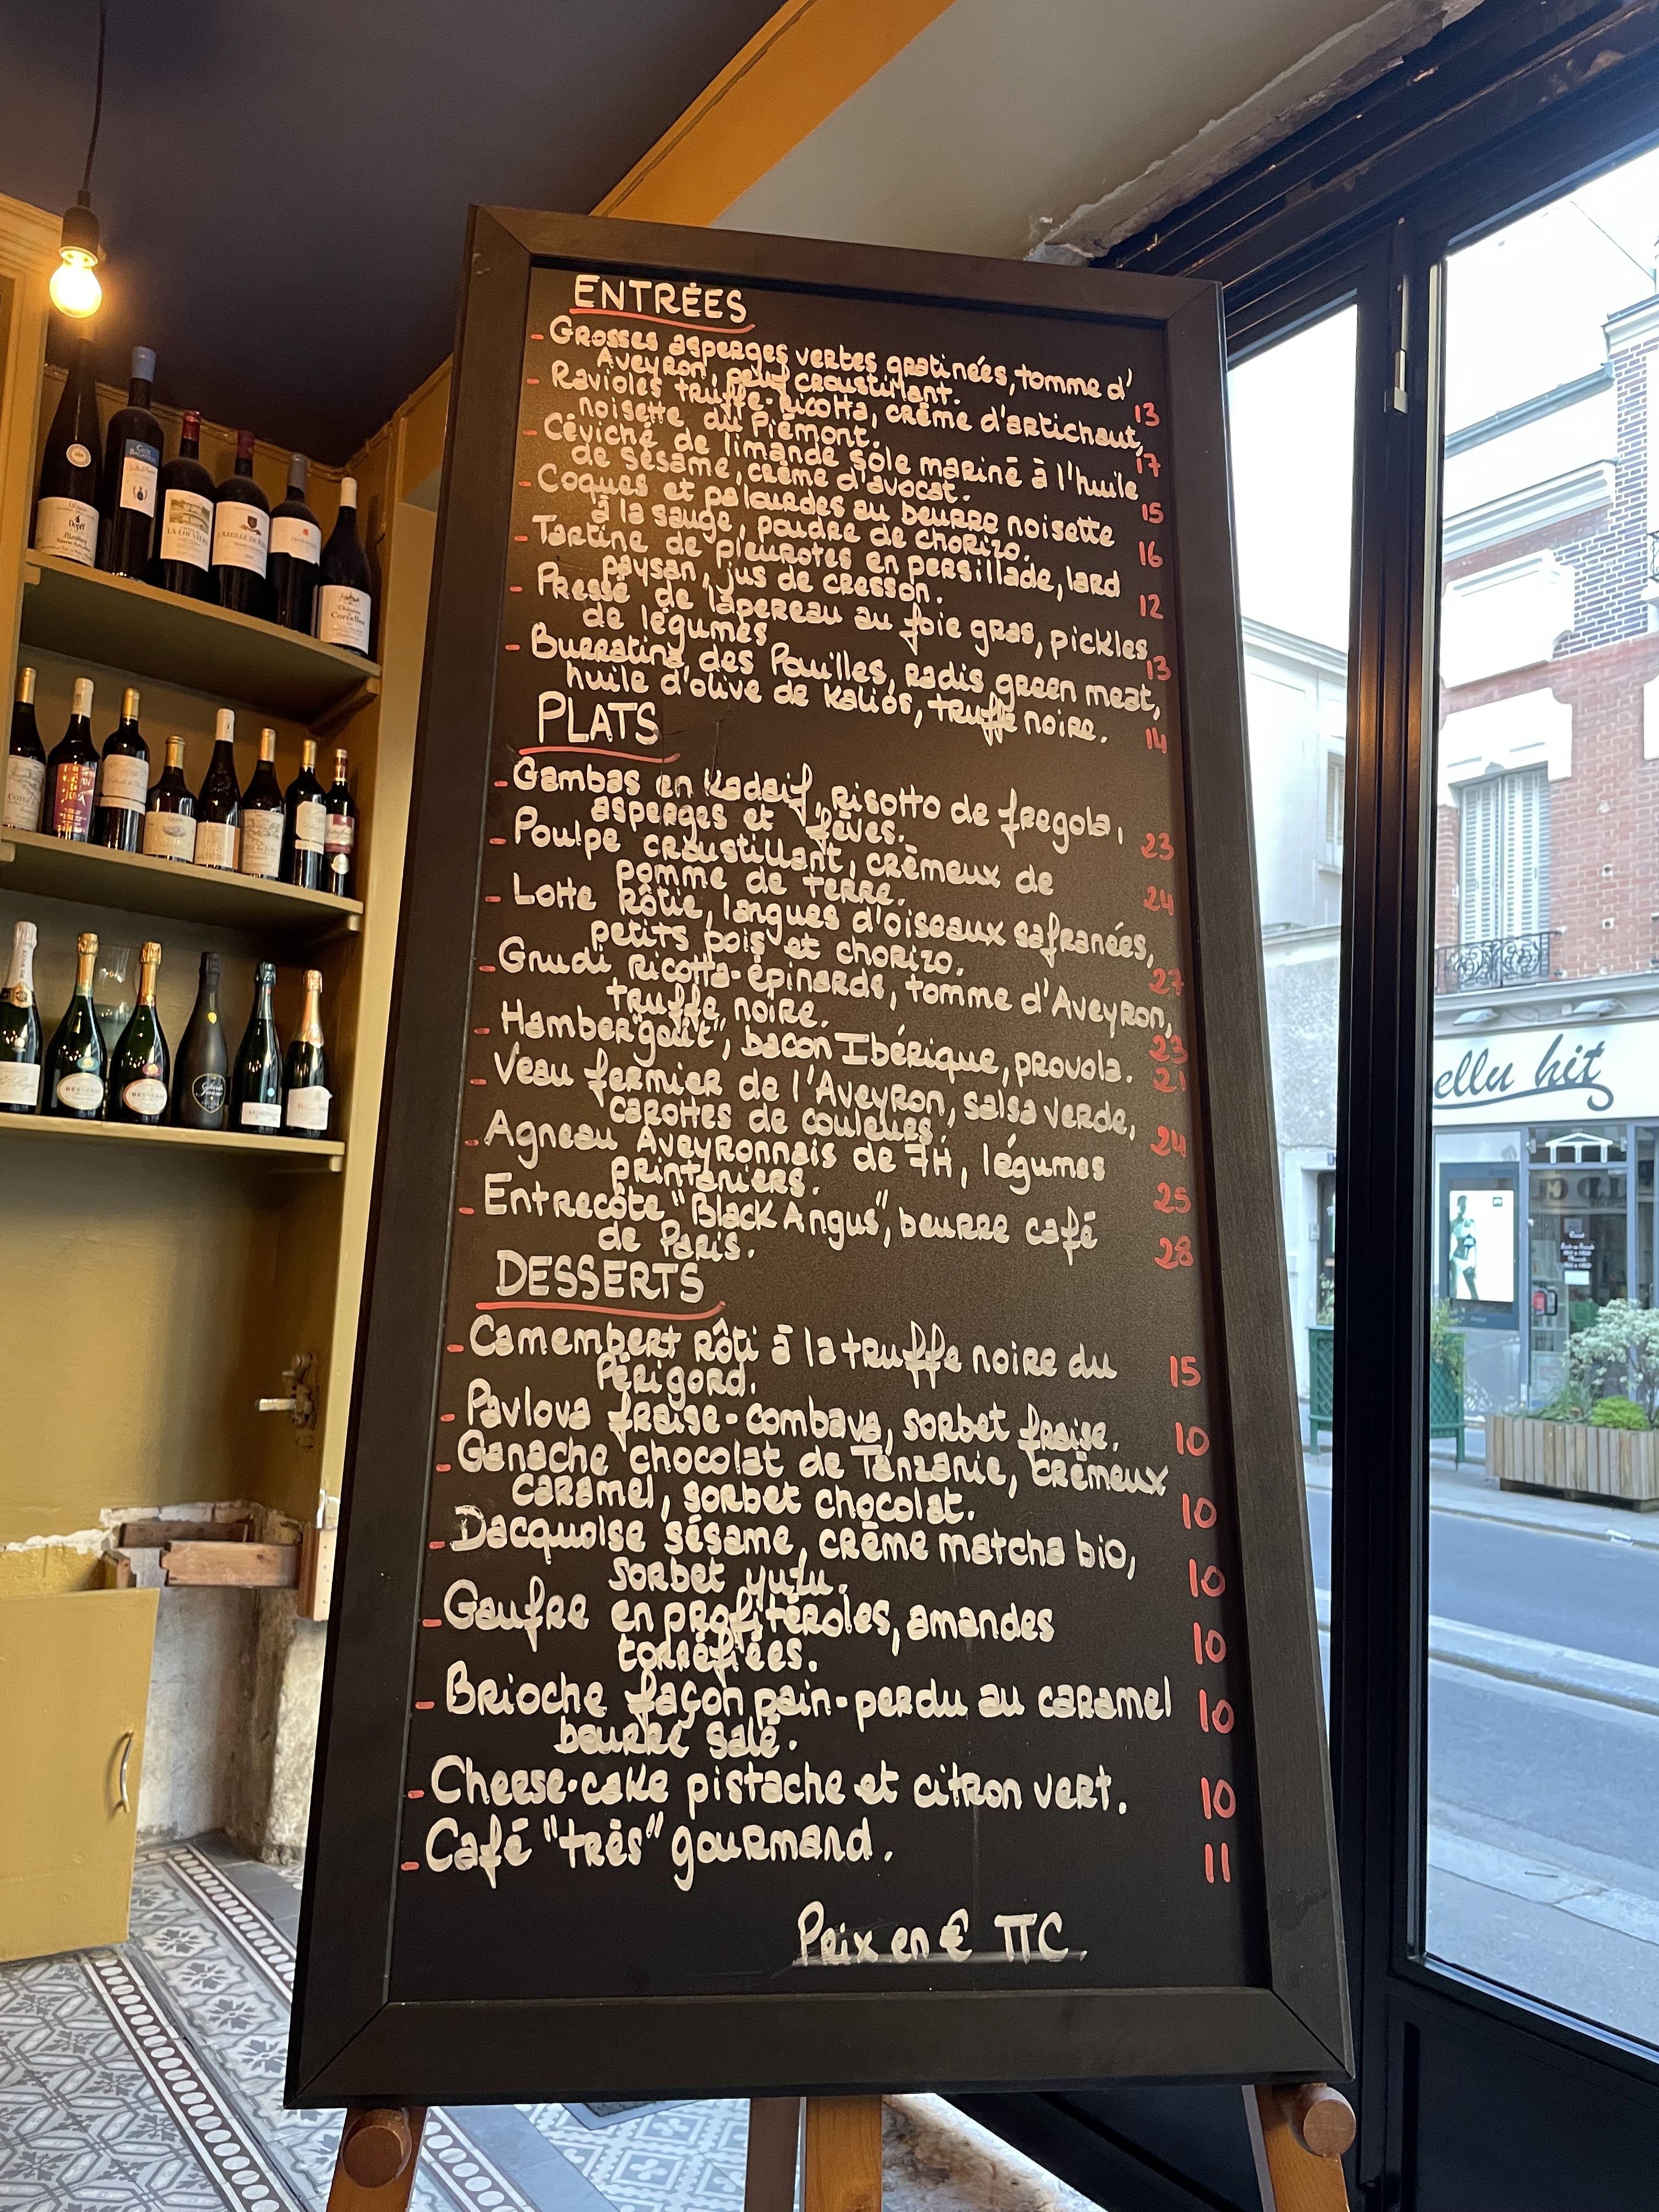 ENTRÉES
- Grosses asperges vertes gratinées, tomme d'
Aveyron, œuf croustillant. 13
- Ravioles truffe-ricotta, crème d'artichaut,
noisette du Piémont. 17
- Céviché de limande sole mariné à l'huile
de sésame, crème d'avocat. 15
- Coques et palourdes au beurre noisette
à la sauge, poudre de chorizo. 16
- Tartine de pleurotes en persillade, lard
paysan, jus de cresson. 12
- Pressé de lapereau au foie gras, pickles
de légumes 13
- Burratina des Pouilles, radis green meat,
huile d'olive de Kalios, truffe noire. 14
PLATS
- Gambas en Kadaïf, risotto de fregola,
asperges et fèves. 23
- Poulpe croustillant, crémeux de
pomme de terre. 24
- Lotte rôtie, langues d'oiseaux safranées,
petits pois et chorizo. 27
- Gnudi ricotta-épinards, tomme d'Aveyron,
truffe noire. 23
- Hamber"goût", bacon Ibérique, provola. 21
- Veau fermier de l'Aveyron, salsa verde,
carottes de couleurs. 24
- Agneau Aveyronnais de 7H, légumes
printaniers. 25
- Entrecôte "Black Angus", beurre café
de Paris. 28
DESSERTS
- Camembert rôti à la truffe noire du
Périgord. 15
- Pavlova fraise-combava, sorbet fraise. 10
- Ganache chocolat de Tanzanie, crémeux
caramel, sorbet chocolat. 10
- Dacquoise sésame, crème matcha bio,
sorbet yuzu. 10
- Gaufre en profitéroles, amandes
torréfiées. 10
- Brioche façon pain-perdu au caramel
beurre salé. 10
- Cheese-cake pistache et citron vert. 10
- Café "très" gourmand. 11
Prix en € TTC.
ellu hit